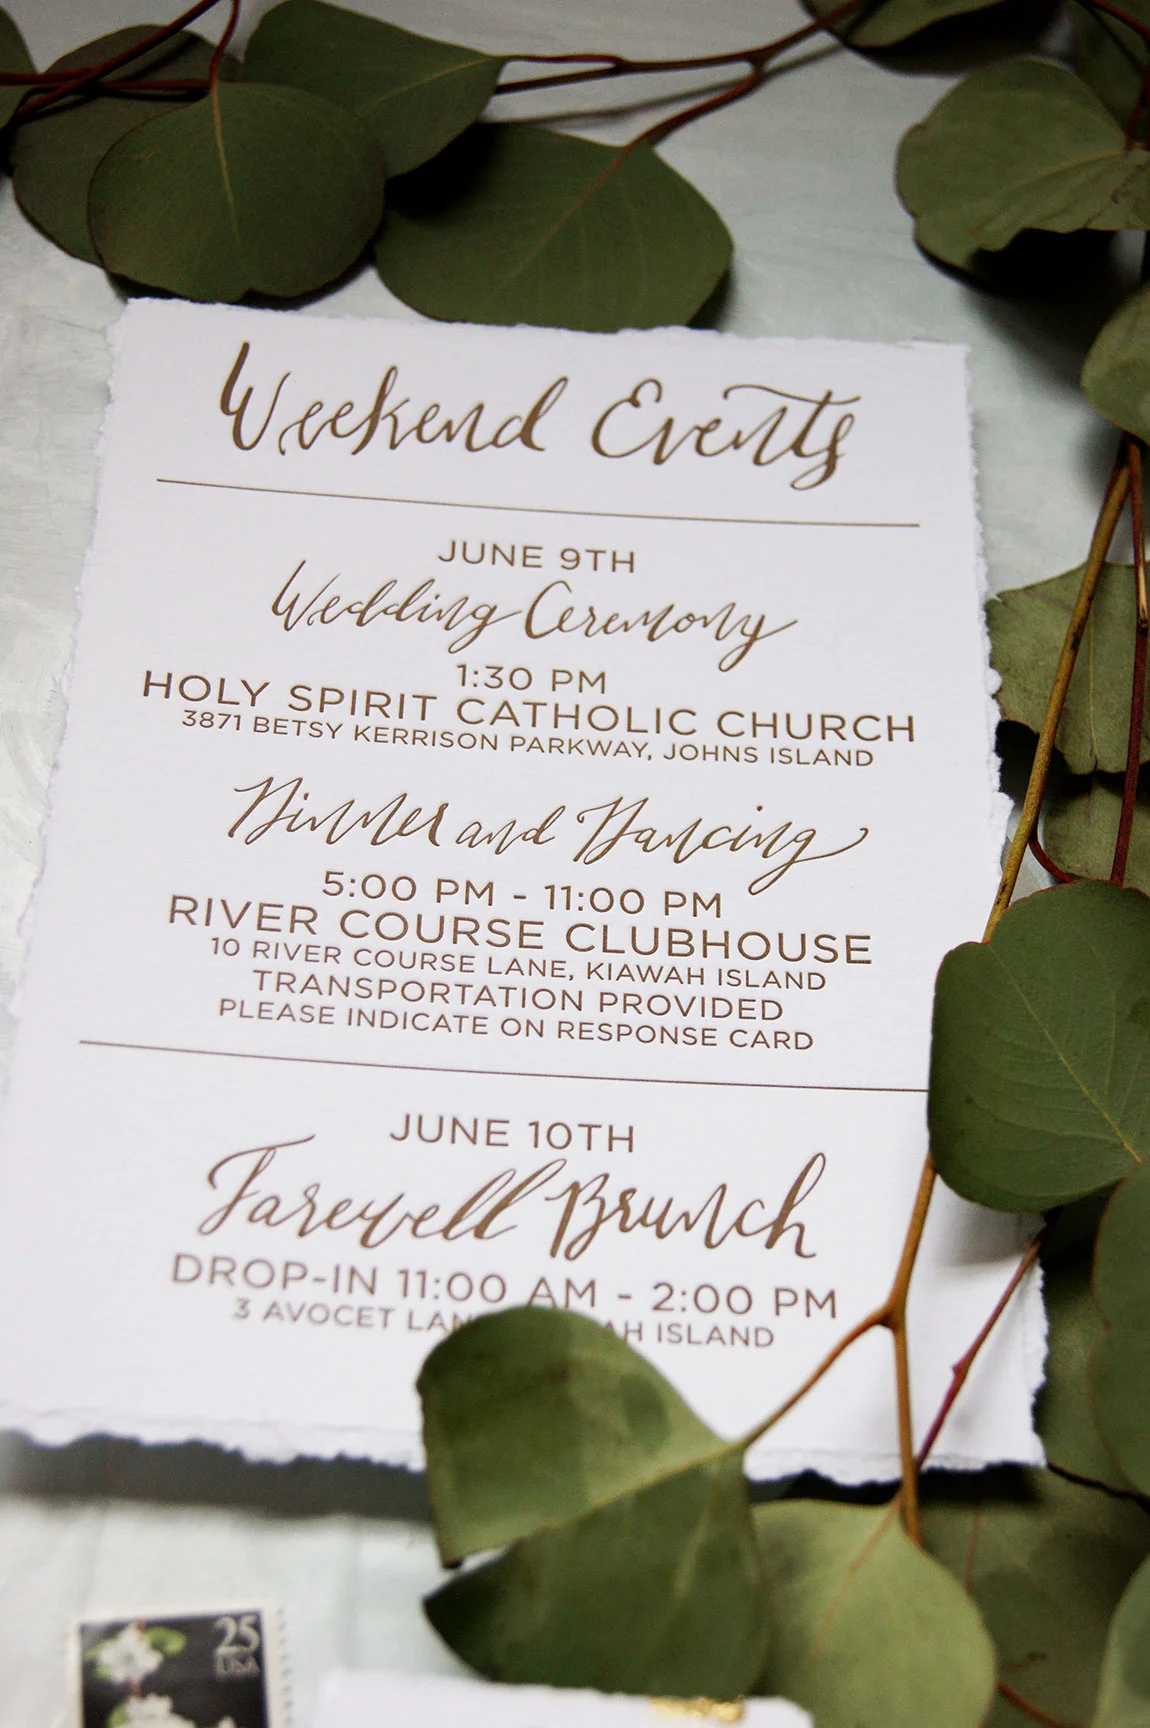 Weekend Events
JUNE 9TH
Wedding Ceremony
1:30 PM
HOLY SPIRIT CATHOLIC CHURCH
3871 BETSY KERRISON PARKWAY, JOHNS ISLAND
Dinner and Dancing
5:00 PM - 11:00 PM
RIVER COURSE CLUBHOUSE
10 RIVER COURSE LANE, KIAWAH ISLAND
TRANSPORTATION PROVIDED
PLEASE INDICATE ON RESPONSE CARD
JUNE 10TH
Farewell Brunch
DROP-IN 11:00 AM - 2:00 PM
3 AVOCET ISLAND
25
USA